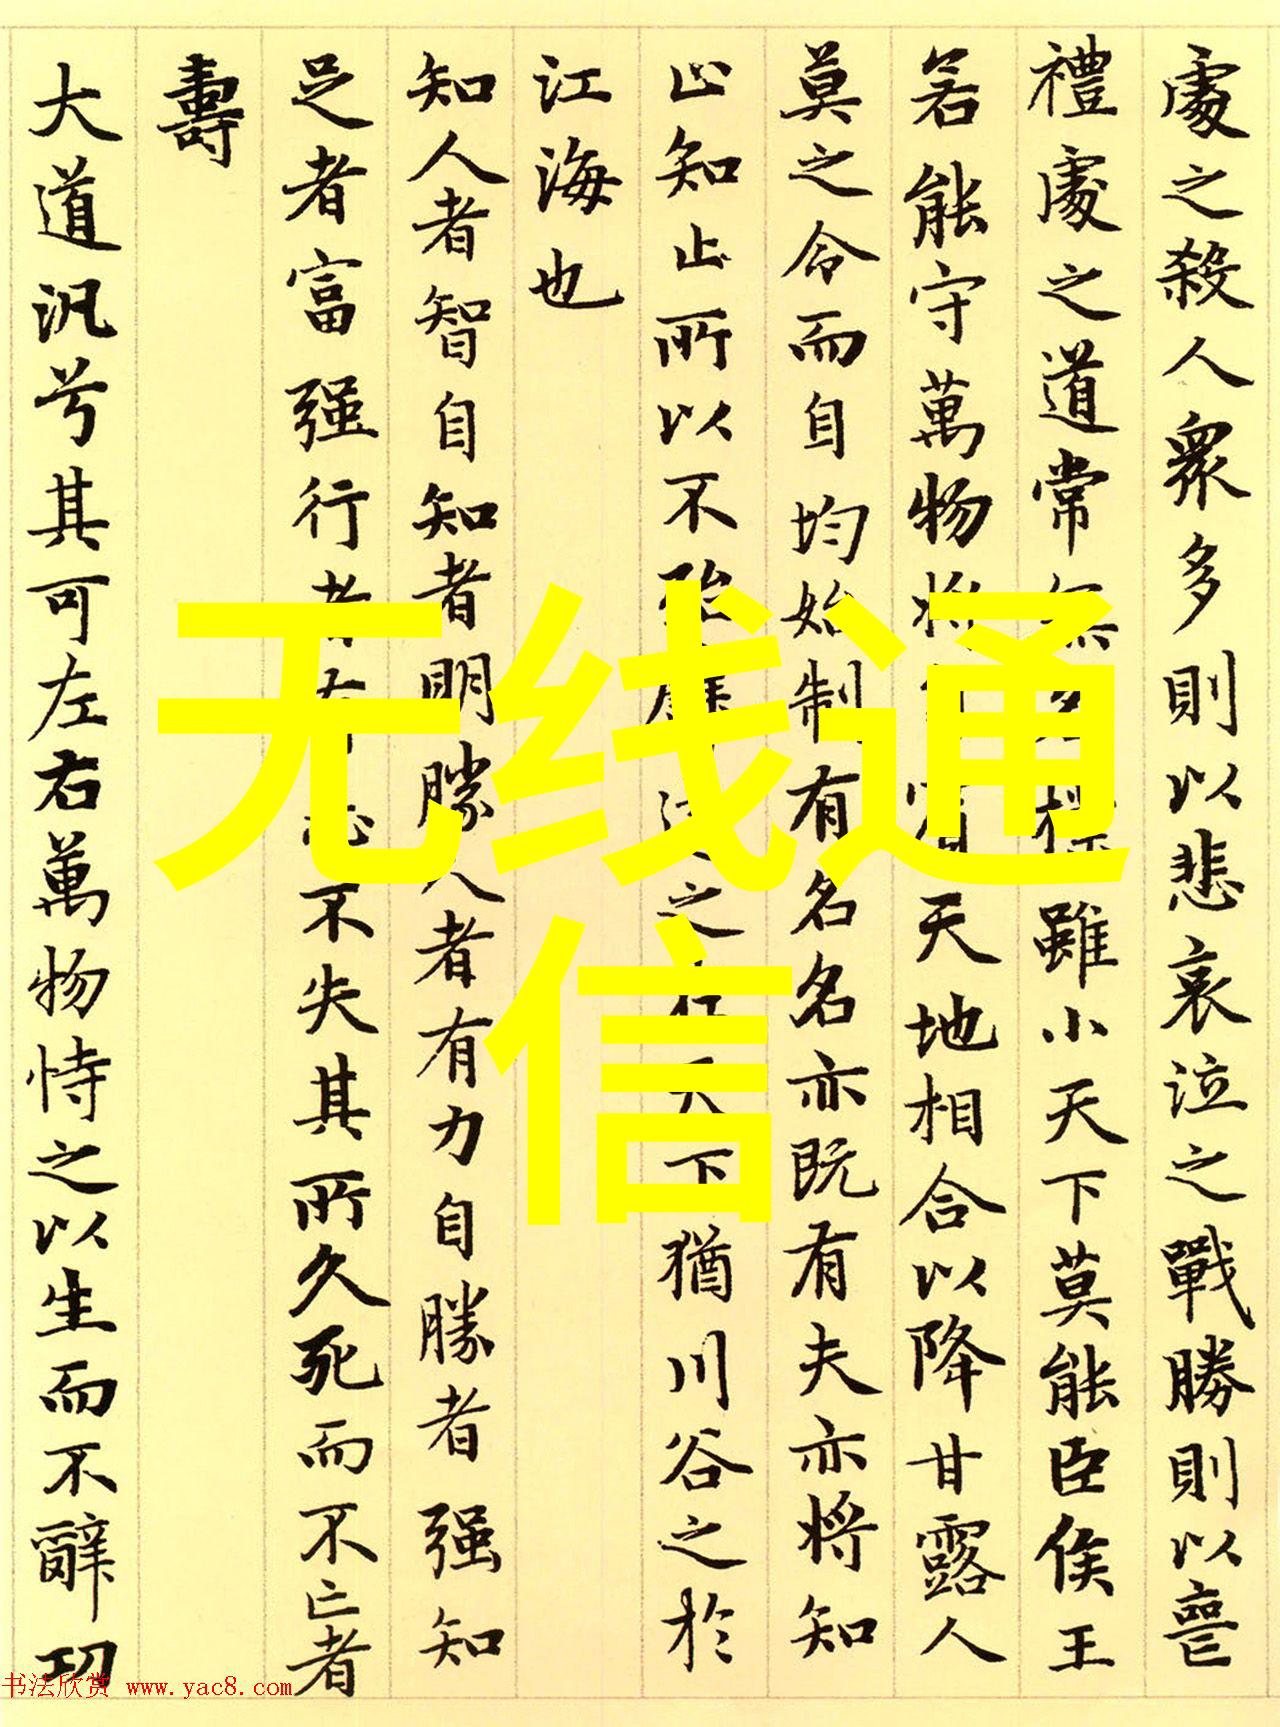 處之殺人衆多則以悲哀泣之戰勝則以喪
禮處之道常無雖小天下莫能臣侯王
若能守萬物將天地相合以降甘露人
莫之令而自均始制有名名亦既有夫亦將知
止知止所以不殆之在天下猶川谷之於
江海也
知人者智自知者明勝人者有力自勝者强知
足者富强行者有志不失其所久死而不亡者
壽
大道汎兮其可左右萬物恃之以生而不辭功
无线通
信
书法欣赏 www.yac8.com